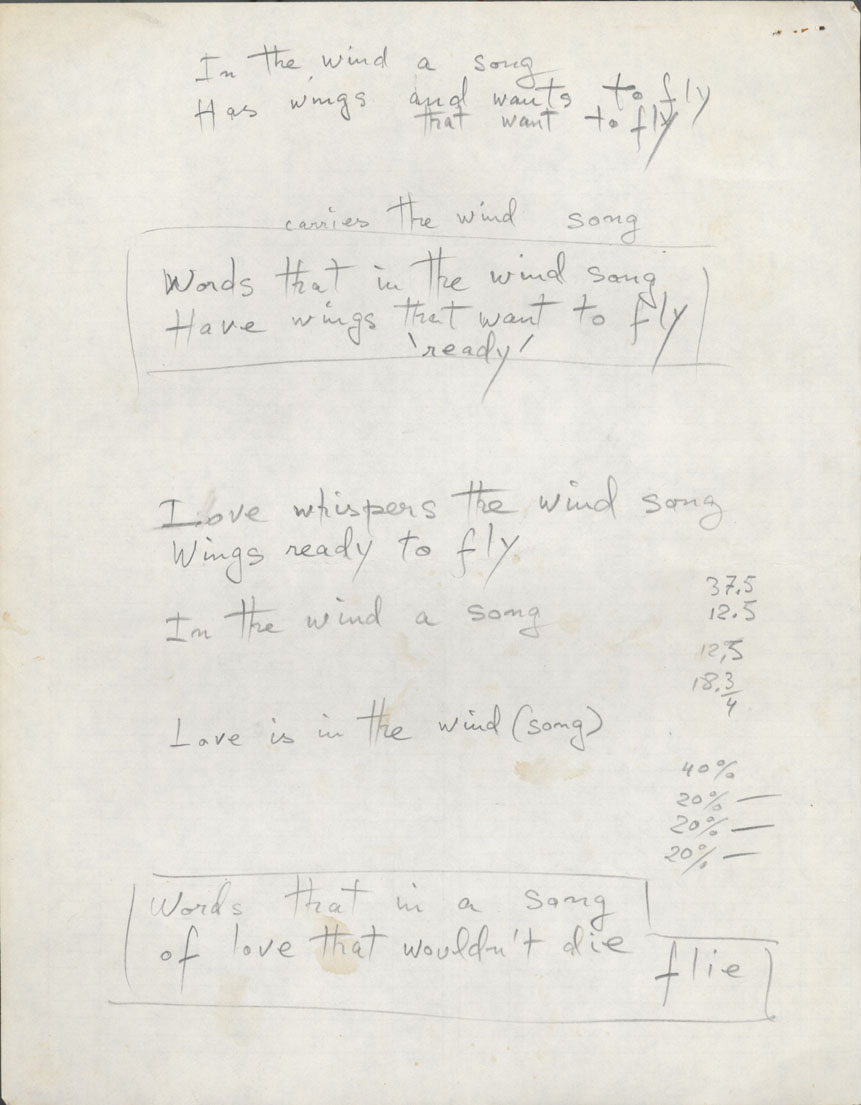 In the wind a song
Has wings and wants to fly
that want to fly
carries the wind song
Words that in the wind song
Have wings that want to fly
'ready'
Love whispers the wind song
Wings ready to fly
37.5
12.5
In the wind a song
12,5
18.3/4
Love is in the wind (song)
40%
20% —
20% —
20% —
Words that in a song
of love that wouldn't die
flie